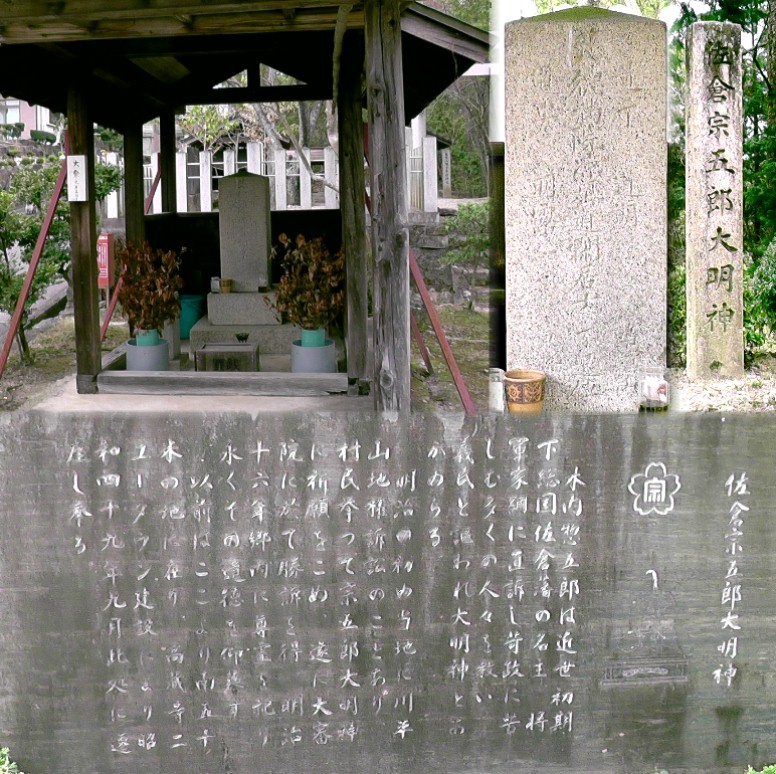 佐倉宗五郎大明神
佐倉宗五郎大明神
宗
木内惣五郎は近世初期
下総国佐倉藩の名主 将
軍家綱に直訴し苛政に苦
しむ多くの人々を救い
義民と謳われ大明神とあ
がめらる
明治の初め当地に川平
山地権訴訟のことあり
村民挙つて宗五郎大明神
に祈願をこめ 遂に大審
院に於て勝訴を得 明治
十六年郷内に尊霊を祀り
永くその遺徳を仰慕す
以前はここより南五十
米の地に在り 高蔵寺ニ
ュータウン建設により昭
和四十九年九月此処に遷
座し奉る